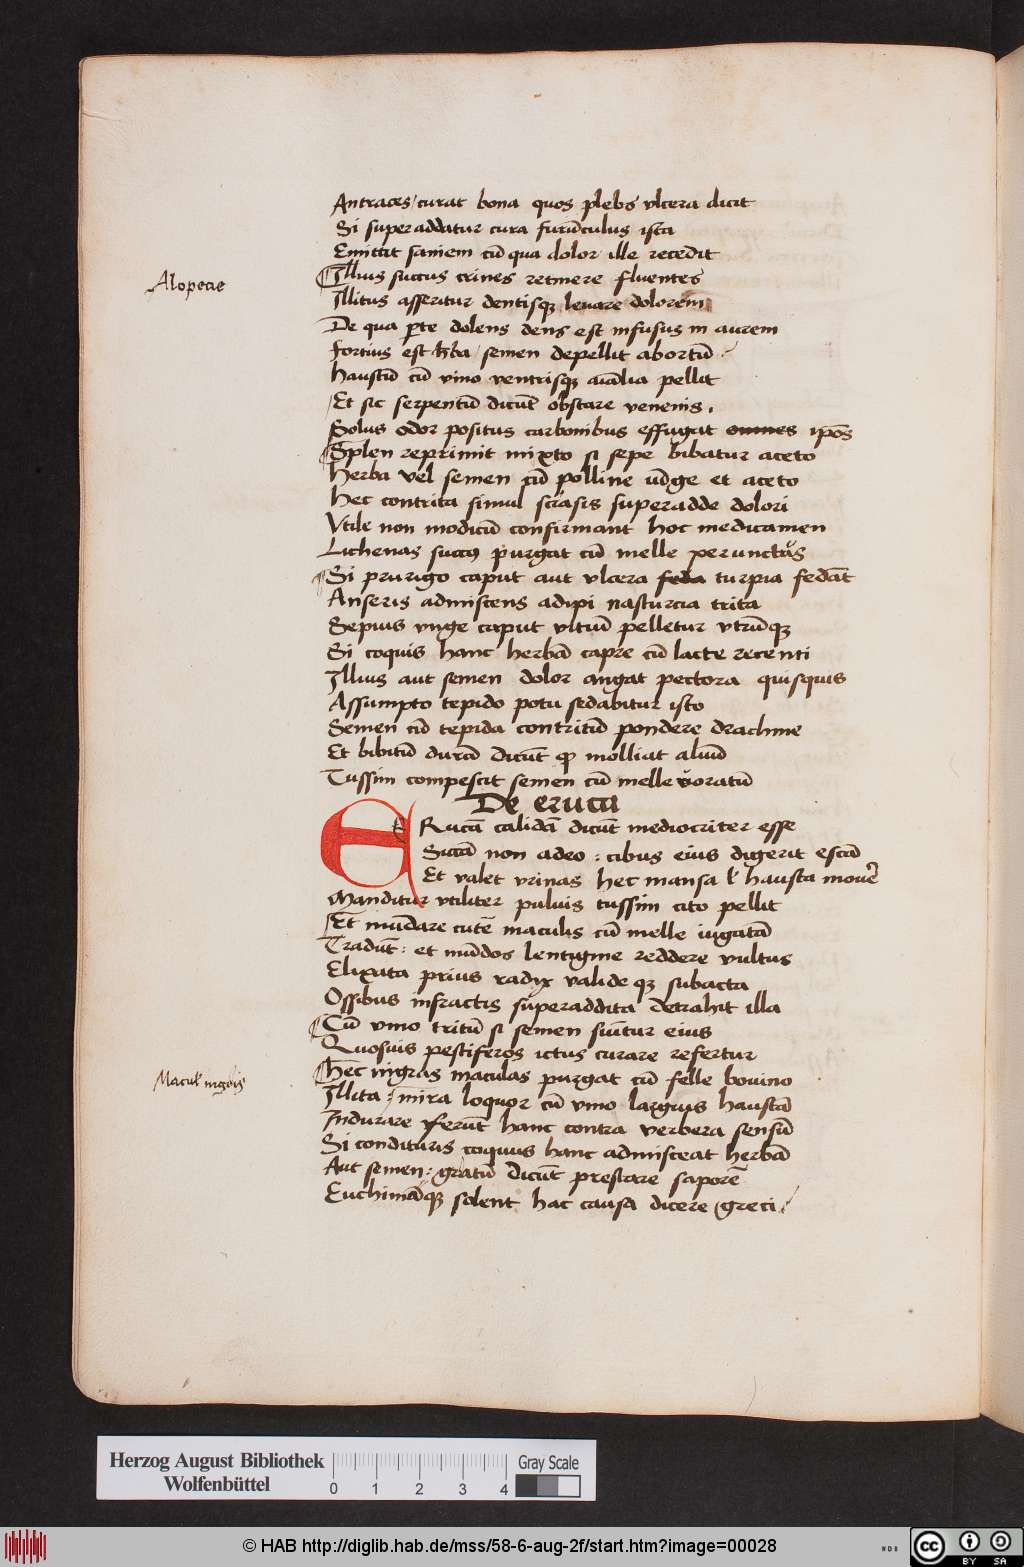 Antraces / curat bona quos plebs vlcera dicit
Si superaddatur cura furūculus ista
Emittit saniem cū qua dolor ille recedit
Alopecie
Illius succus crines retinere fluentes
Illitus asseritur dentisqꝫ leuare dolorem
De qua ꝑte dolens dens est infusus in aurem
Fortius est hꝰba / semen depellit abortū
haustū cū vino ventrisqꝫ aīalia pellit
Et sic serpentū dicūt obstare venenis .
Solus odor positus carbonibus effugat omnes ipōs
Splen reprimit mixto si sepe bibatur aceto
Herba vel semen cū polline iūge et aceto
Hec contrita simul sciasis superadde dolori
Vtile non modicū confirmant hoc medicamen
Lichenas succꝰ purgat cū melle perunctas
Si prurigo caput aut vlcera feda turpia fedāt
Anseris admiscens adipi nasturcia trita
Sepius vnge caput vitiū pelletur vtrūqꝫ
Si coquis hanc herbā capre cū lacte recenti
Illius aut semen dolor angat pectora quisquis
Assumpto tepido potu sedabitur isto
Semen cū tepida contritū pondere drachme
Et bibitū durā dicūt ꝙ molliat aluū
Tussim compescit semen cū melle voratū
De eruca
ERucā calidā dicūt mediocriter esse
Siccā non adeo : cibus eius digerit escā
Et valet vrinas hec mansa ł hausta mouēr
Manditur vtiliter puluis tussim cito pellit
Et mūdare cutē maculis cū melle iugatā
Tradūt : et mūdos lentigine reddere vultus
Elixata prius radix valide qꝫ subacta
Ossibus infractis superaddita detrahit illa
Cū vino tritū si semen sūītur eius
Quosuis pestiferos ictus curare refertur
Macuł nigris
Hec nigras maculas purgat cū felle bouino
Illita : mira loquor cū vino largius haustā
Indurare ferūt hanc contra verbera sensū
Si condituris coquus hanc admisceat herbā
Aut semen : gratū dicūt prestare saporē
Euchimāqꝫ solent hac causa dicere greci .
Herzog August Bibliothek
Wolfenbüttel
0 1 2 3 4
Gray Scale
© HAB http://diglib.hab.de/mss/58-6-aug-2f/start.htm?image=00028
WDB
cc BY SA